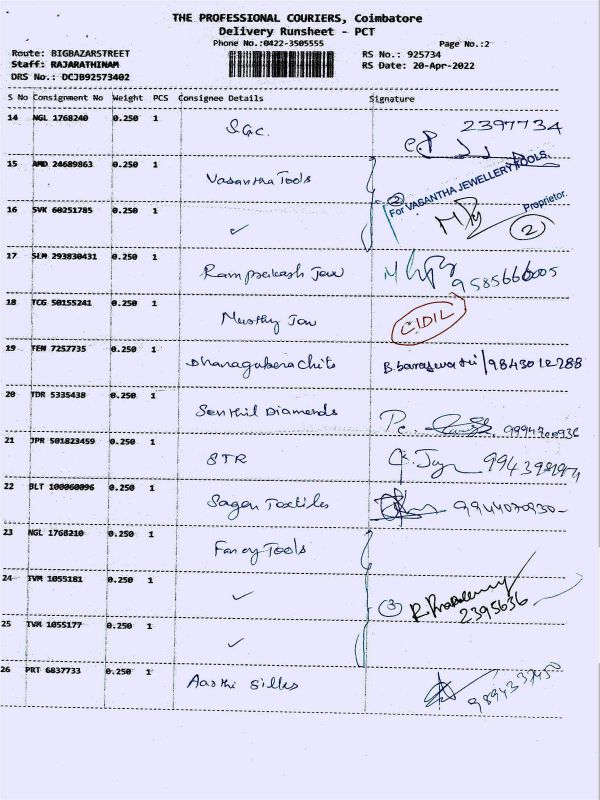 THE PROFESSIONAL COURIERS, Coimbatore
Delivery Runsheet - PCT
Phone No.:0422-3505555 Page No.:2
Route: BIGBAZARSTREET RS No.: 925734
Staff: RAJARATHINAM RS Date: 20-Apr-2022
DRS No.: DCJB92573402
S No Consignment No Weight PCS Consignee Details Signature
14 NGL 1768240 0.250 1 S.G.C. 2397734
15 AMD 24689863 0.250 1 Vasantha Tools
For VASANTHA JEWELLERY TOOLS,
Proprietor.
16 SVK 60251785 0.250 1 ✓ 2
17 SEM 293830431 0.250 1 Ramprakash Jew 9585666005
18 TCG 50155241 0.250 1 Murthy Jew
19 TEN 7257735 0.250 1 Dhanagubera Chits
20 TDR 5335438 0.250 1 Senthil Diamonds
21 JPR 501823459 0.250 1 STR
22 BLT 100060096 0.250 1 Sagar Textiles
23 NGL 1768210 0.250 1 Fancy Tools
24 TVM 1055181 0.250 1 ✓ 3
2395636
25 TVM 1055177 0.250 1 ✓
26 PRT 6837733 0.250 1 Aarthi Silks